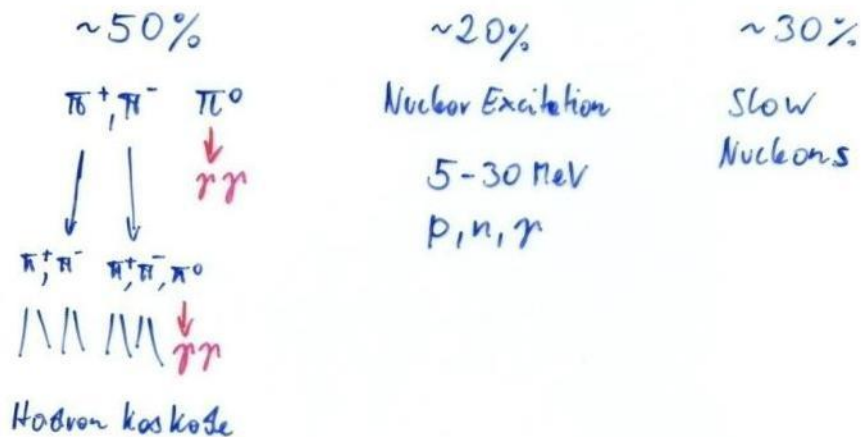 ~50%
π⁺, π⁻ π⁰
γγ
π⁺, π⁻ π⁺, π⁻, π⁰
γγ
Hadron kaskade
~20%
Nuclear Excitation
5-30 MeV
p, n, γ
~30%
Slow
Nucleons